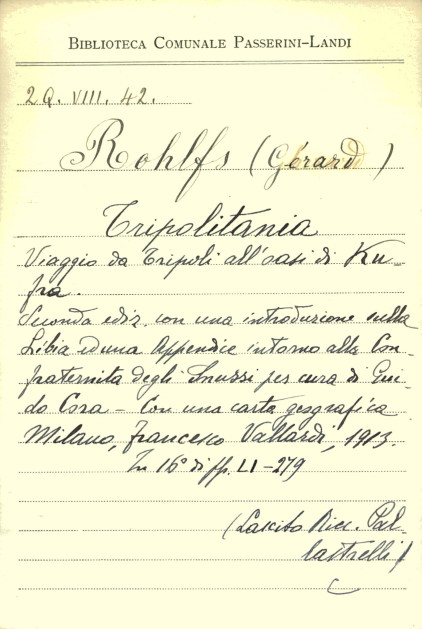 BIBLIOTECA COMUNALE PASSERINI-LANDI
2Q. VIII. 42.
Rohlfs (Gérard)
Tripolitania
Viaggio da Tripoli all'oasi di Ku-
fra.
Seconda ediz. con una introduzione sulla
Libia ed una Appendice intorno alla Con-
fraternita degli Snussi per cura di Gui-
do Cora - Con una carta geografica
Milano, Francesco Vallardi, 1913.
In 16° di pp. LI-279
(Lascito Ricc. Pal-
lastrelli)